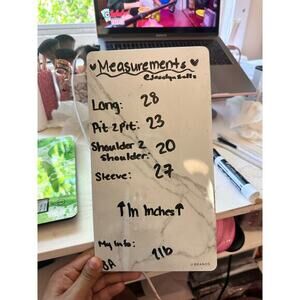 ♥Measurements♥
Long: 28
Pit 2 Pit: 23
Shoulder 2
Shoulder: 20
Sleeve: 27
↑In Inches↑
My Info:
U BRANDS